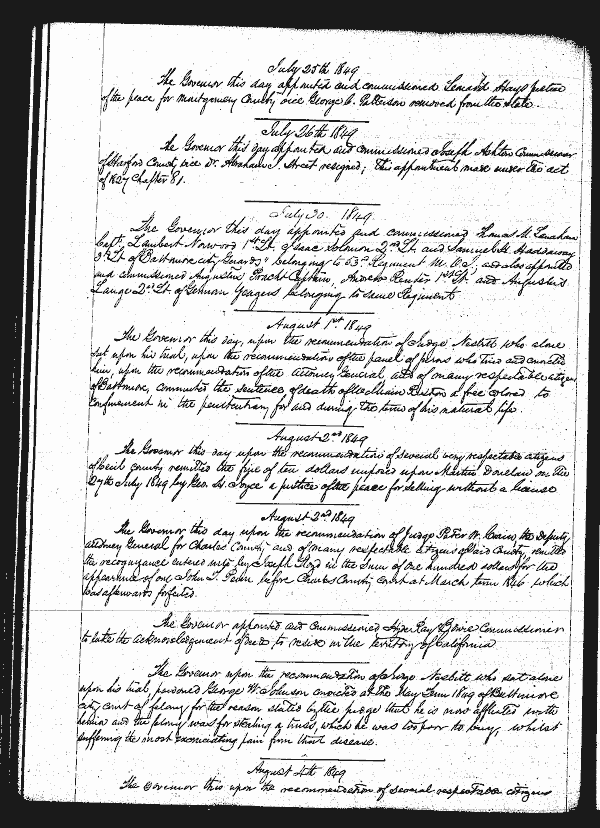 July 25th 1849
The Governor this day appointed and commissioned Leonard Hays Justice
of the peace for Montgomery County vice George C. Patterson removed from the state.
July 26th 1849
The Governor this day appointed and commissioned Joseph Ashton Commissioner
of Harford County, vice Dr. Abraham J. Street resigned; this appointment made under the act
of 1827 Chapter 81.
July 30 1849
The Governor this day appointed and commissioned Thomas M. Lanahan
Capt, Lambert Norwood 1st Lt. Isaac Solomon 2nd Lt. and Samuel H.
3rd Lt of Baltimore city Guards belonging to 53rd Regiment M. M. and also appointed
and commissioned Augustin Captain, Andrew 1st Lt. and
Lange 2nd Lt. of German Yeagers belonging to same Regiment
August 1st 1849
The Governor this day, upon the recommendation of Judge Nesbitt who alone
sat upon his trial, upon the recommendation of the panel of jurors who tried and convicted
him, upon the recommendation of the Attorney General and of many respectable citizens
of Baltimore, commutes the sentence of death of William a free colored to
confinement in the penitentiary for and during the term of his natural life.
August 2nd 1849
The Governor this day upon the recommendation of several very respectable citizens
of Cecil county remitted the fine of ten dollars imposed upon Martin on the
27th July 1849 by Geo. H. Joyce a justice of the peace for selling without a license
August 2nd 1849
The Governor this day upon the recommendation of Judge Peter W. Crain, the Deputy
attorney General for Charles County and of many respectable citizens of said County, remitted
the recognizance entered into by Joseph in the Sum of one hundred dollars for the
appearance of one John L. before Charles County court at March term 1846 which
was afterwards forfeited.
The Governor appointed and commissioned Bowie Commissioner
to take the acknowledgement of deeds, to reside in the territory of California
The Governor upon the recommendation of Judge Nesbitt who sat alone
upon his trial, pardoned George W. Johnson convicted at the May Term 1849 of Baltimore
city court of felony for the reason stated by the judge that he is now afflicted with
hernia and the felony was for stealing a truss, which he was too poor to buy, whilst
suffering the most excruciating pain from that disease.
August 4th 1849
The Governor this upon the recommendation of several respectable citizens